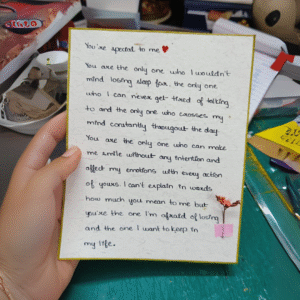 You're special to me ❤
You are the only one who I wouldn't
mind losing sleep for, the only one
who I can never get tired of talking
to and the only one who crosses my
mind constantly throughout the day.
You are the only one who can make
me smile without any intention and
affect my emotions with every action
of yours. I can't explain in words
how much you mean to me but
you're the one I'm afraid of losing
and the one I want to keep in
my life.